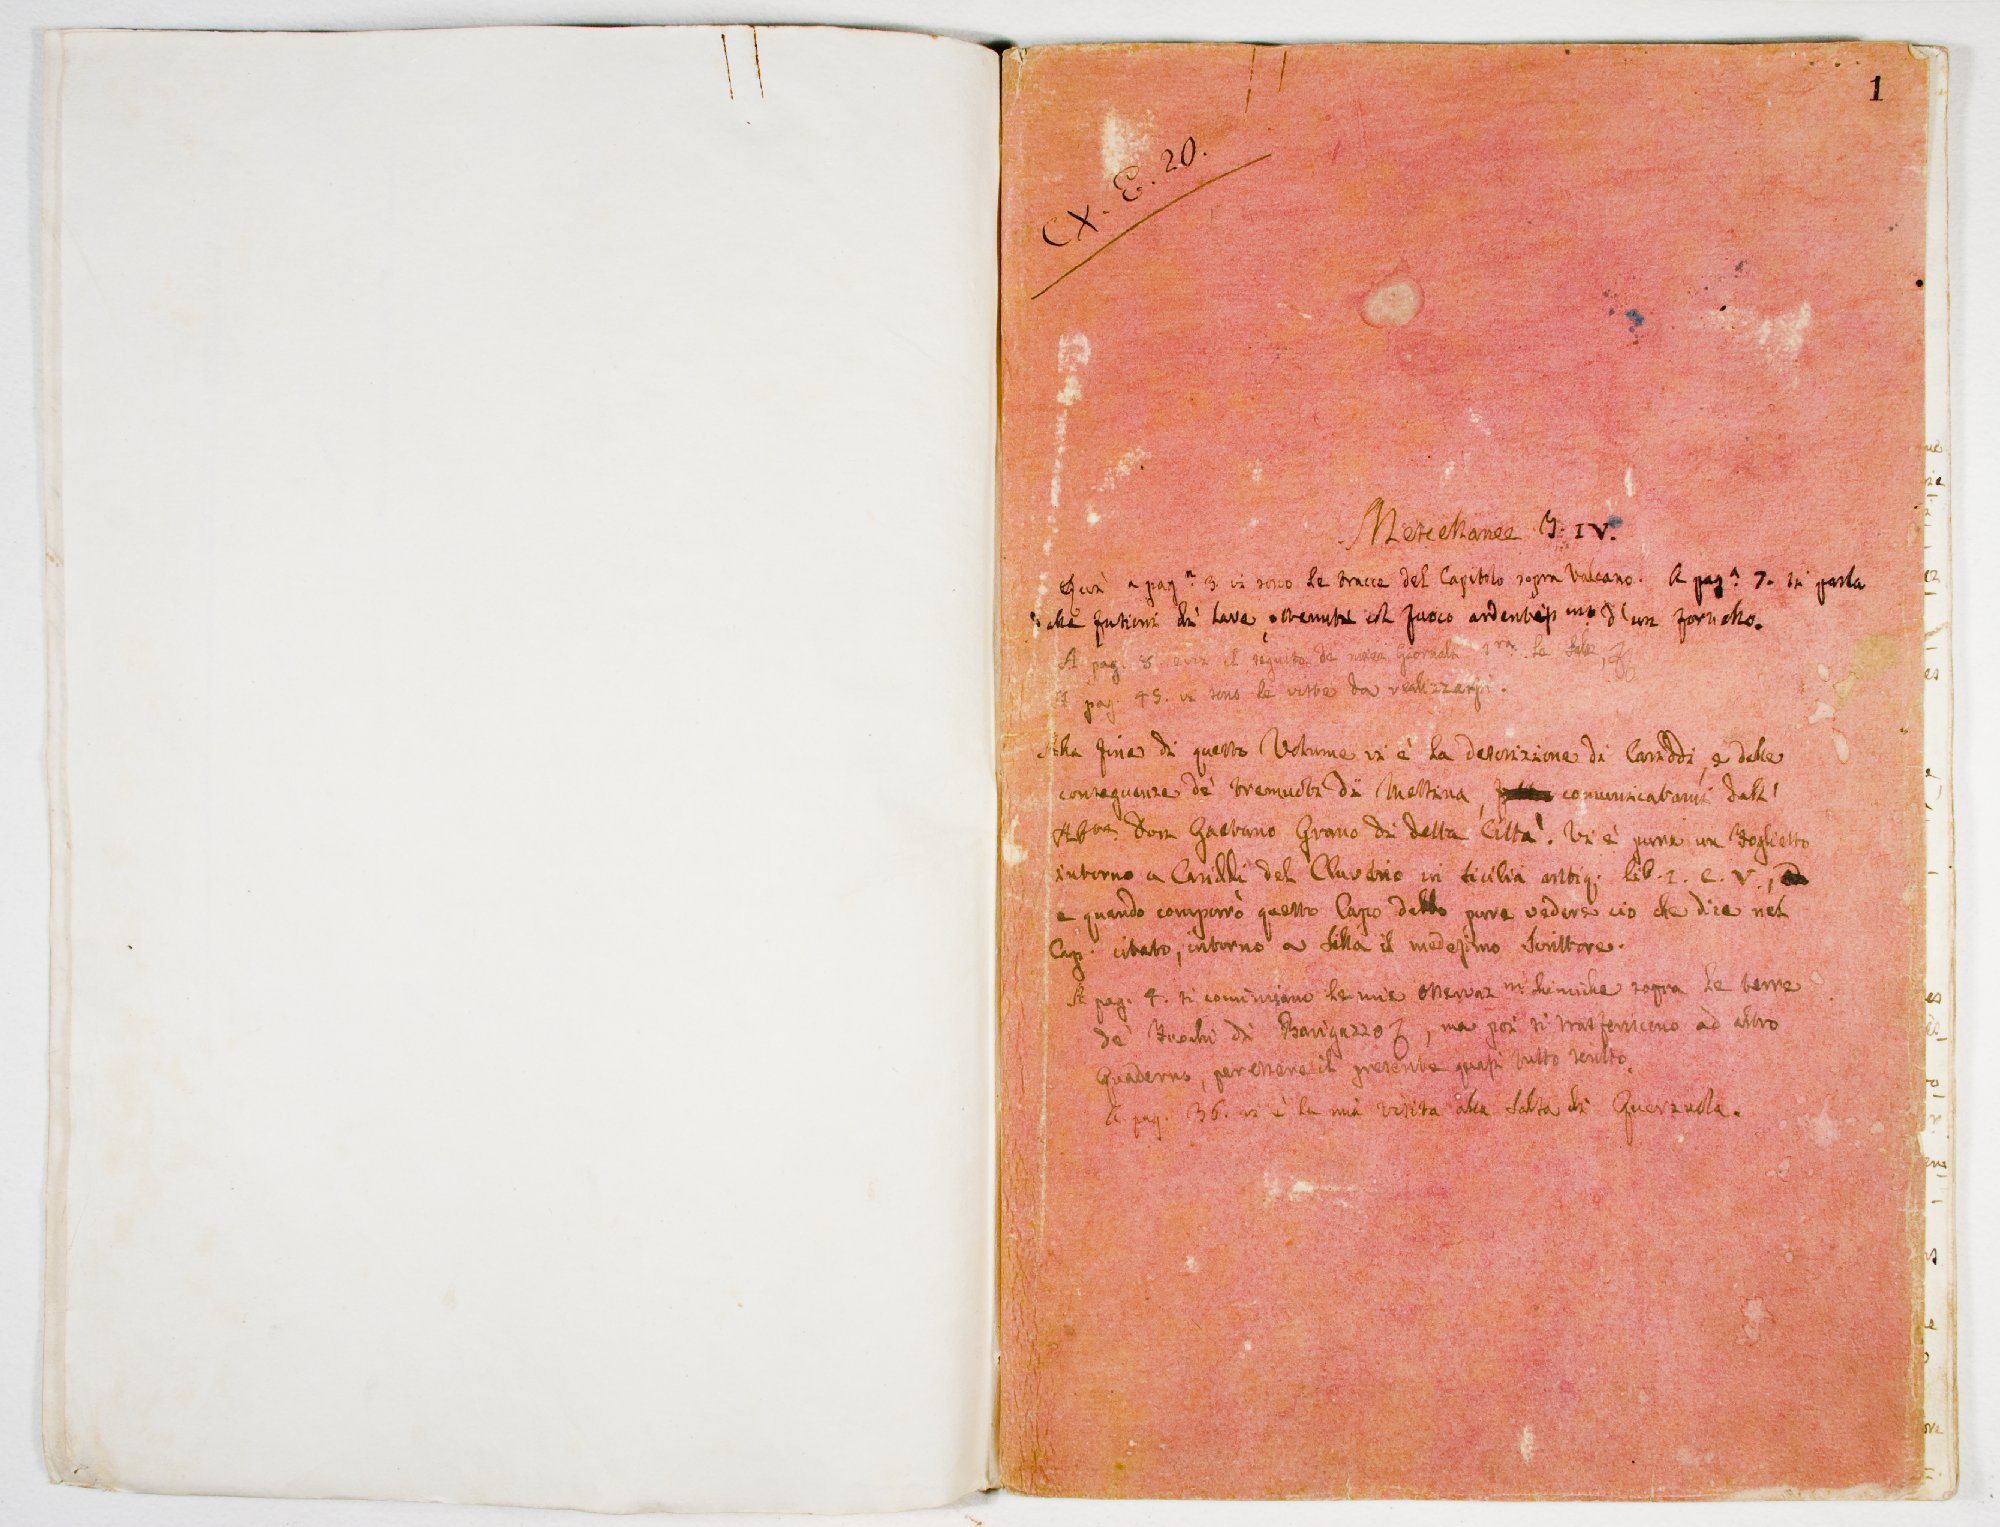 1
CX. E. 20.
Miscellanee T. IV.
Quì a pag.ª 3. vi sono le tracce del Capitolo sopra Vulcano. A pag.ª 7. si parla
delle fusioni di lave, ottenute col fuoco ardentiss.mo d'un fornello.
A pag. 8. evvi il seguito de' miei Giornali
A pag. 45. vi sono le viste da realizzarsi.
Alla fine di questo Volume vi è la descrizione di Cariddi, e delle
conseguenze de' tremuoti di Messina, comunicatami dall'
Abate Don Gaetano Grano di detta Città. Vi è pure un Foglietto
intorno a Cariddi del Cluverio in Sicilia antiq. lib. 1. c. V.,
e quando comporrò questo Capo debbo pure vedere ciò che dice nel
Cap. citato, intorno a Silla il medesimo Scrittore.
A pag. 4. si cominciano le mie osservaz.ni chimiche sopra le terre
de' Fuochi di Barigazzo, ma poi si trasferiscono ad altro
Quaderno, per essere il presente quasi tutto scritto.
A pag. 36. vi è la mia visita alla Salsa di Querzuola.